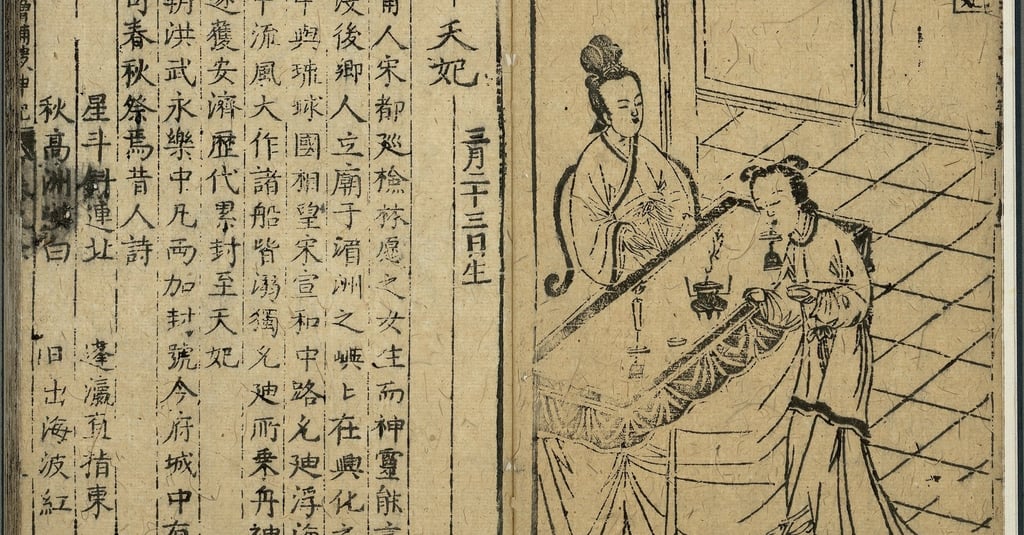 天妃
三月二十三日生
人宋都廵檢林愿之女生而神靈能言
没後卿人立廟于湄洲之嶼上在興化之
與琉球國相望宋宣和中路允廸浮海
中流風大作諸船皆溺獨允廸所乗舟神
遂獲安濟歷代累封至天妃
朝洪武永樂中凡两加封號今府城中有
司春秋祭焉昔人詩
星斗斜連北 蓬瀛直指東
秋高洲嶼白 日出海波紅